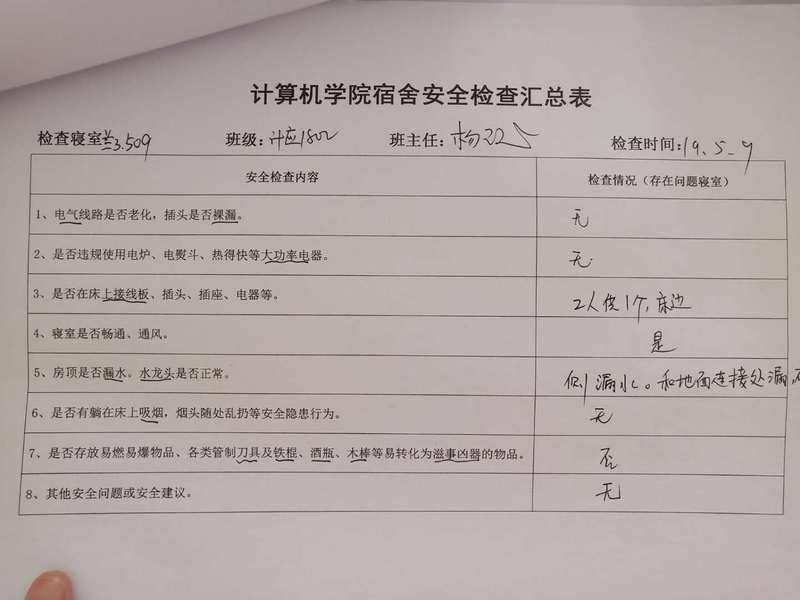 计算机学院宿舍安全检查汇总表
检查寝室:兰3.509 班级:计应1802 班主任:杨 检查时间:19.5.7
安全检查内容 检查情况(存在问题寝室)
1、电气线路是否老化,插头是否裸漏。 无
2、是否违规使用电炉、电熨斗、热得快等大功率电器。 无
3、是否在床上接线板、插头、插座、电器等。 2人使1个,床边
4、寝室是否畅通、通风。 是
5、房顶是否漏水。水龙头是否正常。 侧漏水。和地面连接处漏
6、是否有躺在床上吸烟,烟头随处乱扔等安全隐患行为。 无
7、是否存放易燃易爆物品、各类管制刀具及铁棍、酒瓶、木棒等易转化为滋事凶器的物品。 否
8、其他安全问题或安全建议。 无